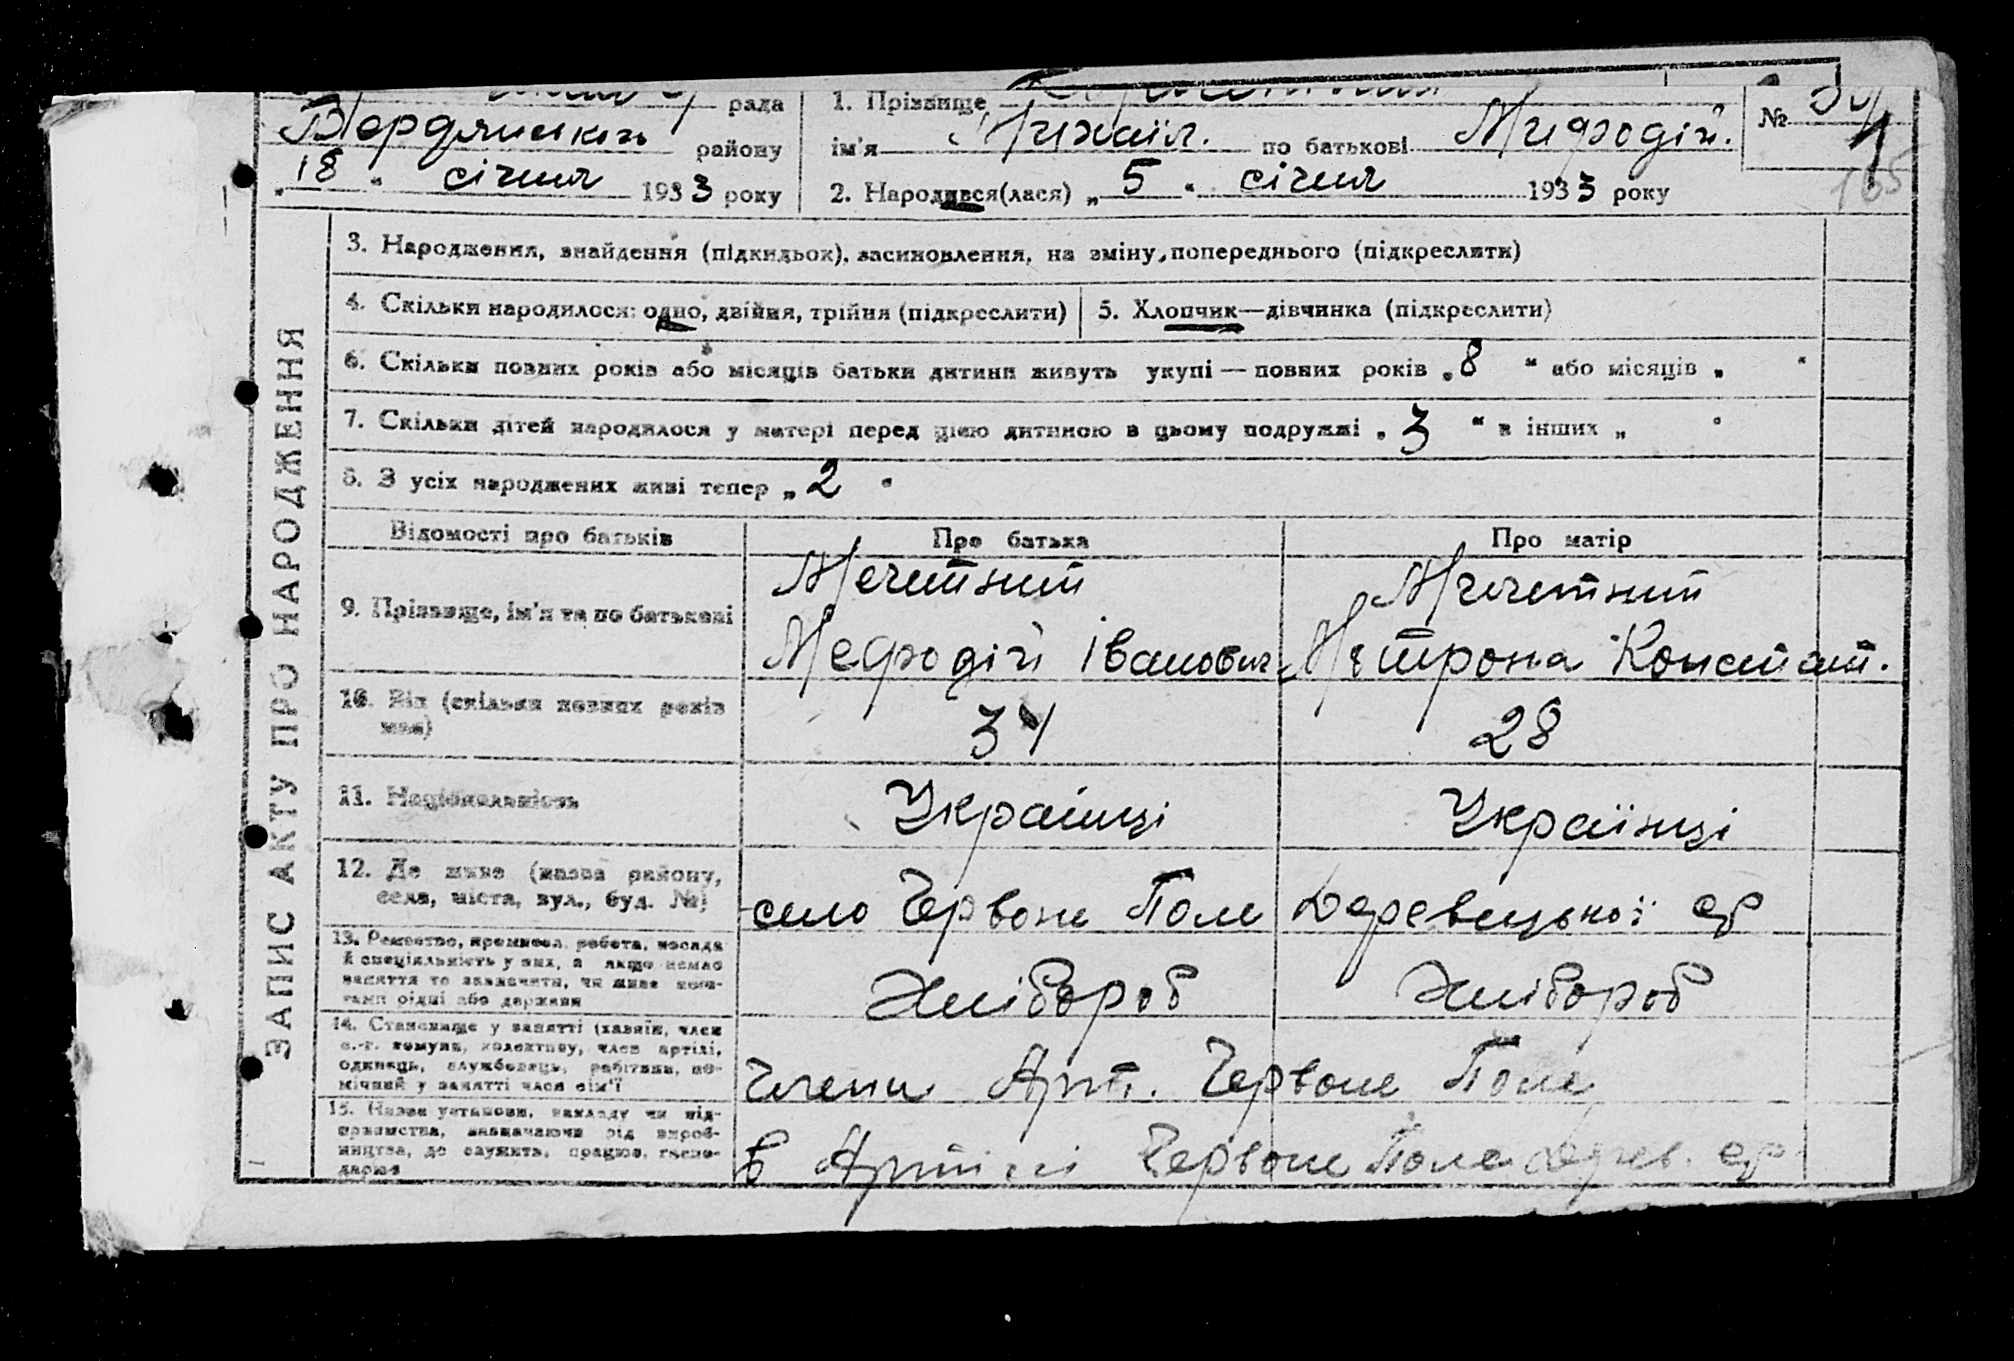 рада
1. Прізвище
№
Бердянського району
ім'я Михаїл. по батькові Мифодій.
„18“ січня 1933 року
2. Народився(лася) „5“ січня 1933 року
165
ЗАПИС АКТУ ПРО НАРОДЖЕННЯ
3. Народження, знайдення (підкидьок), засиновлення, на зміну попереднього (підкреслити)
4. Скільки народилося: одно, двійня, трійня (підкреслити)
5. Хлопчик—дівчинка (підкреслити)
6. Скільки повних років або місяців батьки дитини живуть укупі — повних років „8“ або місяців „ “
7. Скільки дітей народилося у матері перед цією дитиною в цьому подружжі „3“ в інших „ “
8. З усіх народжених живі тепер „2“
Відомості про батьків
Про батька
Про матір
9. Прізвище, ім'я та по батькові
Мечетний
Мефродій Іванович
Мечетний
Мотрона Констант.
10. Вік (скільки повних років
має)
34
28
11. Національність
Українці
Українці
12. Де живе (назва району,
села, міста, вул., буд. №)
село Червоне Поле
Деревецької ср
13. Ремество, промисел, робота, посада
й спеціяльність у них, а якщо немає
заняття то зазначити, чи живе кош-
тами рідні або держави
Хлібороб
Хлібороб
14. Становище у занятті (хазяїн, член
с.-г. комуни, колективу, член артілі,
одинець, службовець, робітник, по-
мічний у занятті член сім'ї
Члени Арт. Червоне Поле
15. Назва установи, закладу чи під-
приємства, зазначаючи рід вироб-
ництва, де служить, працює, госпо-
дарює
в Артілі Червоне Поле Дерев. ср